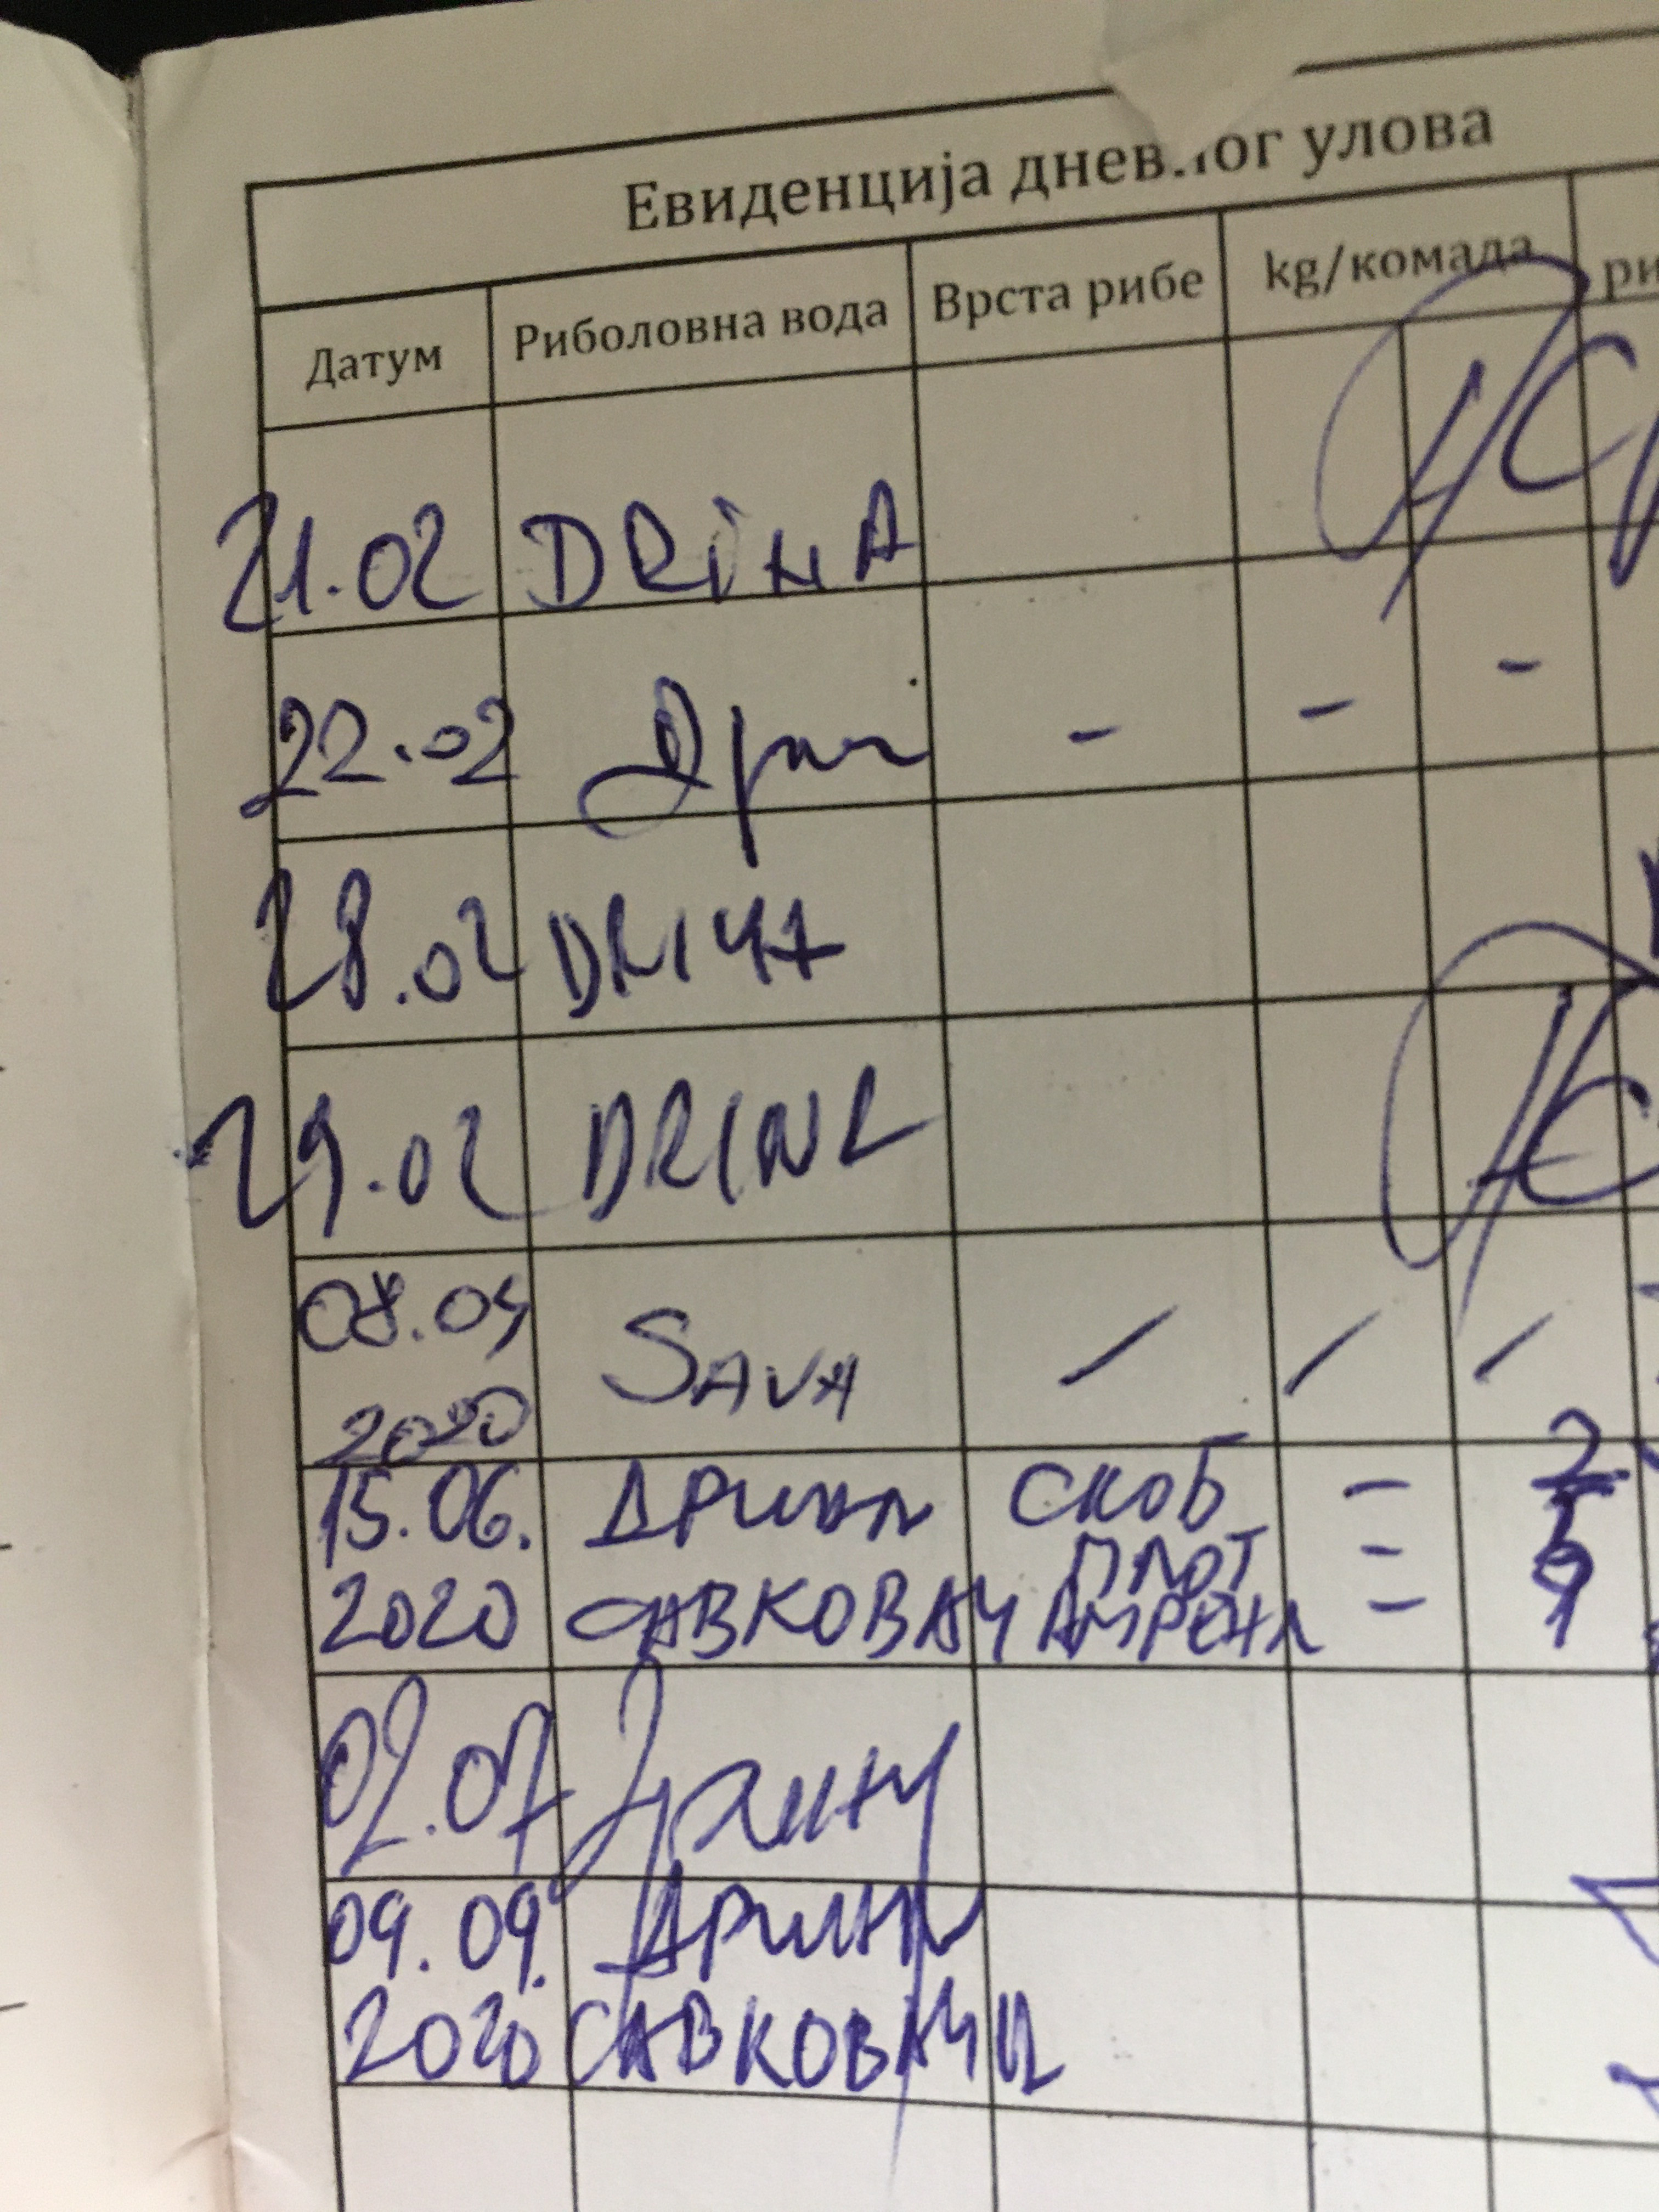 Евиденција дневног улова
Датум Риболовна вода Врста рибе kg/комада ри
21.02 DRINA
22.02 - - -
28.02 DRINA
29.02 DRINA
08.04 SAVA / / /
2020
15.06. ДРИНА СКОБ - 2
ПЛОТ -
2020 САВКОВАЧ МРЕНА - 9
02.07
09.09. ДРИНА
2020 САВКОВАЧИЦ